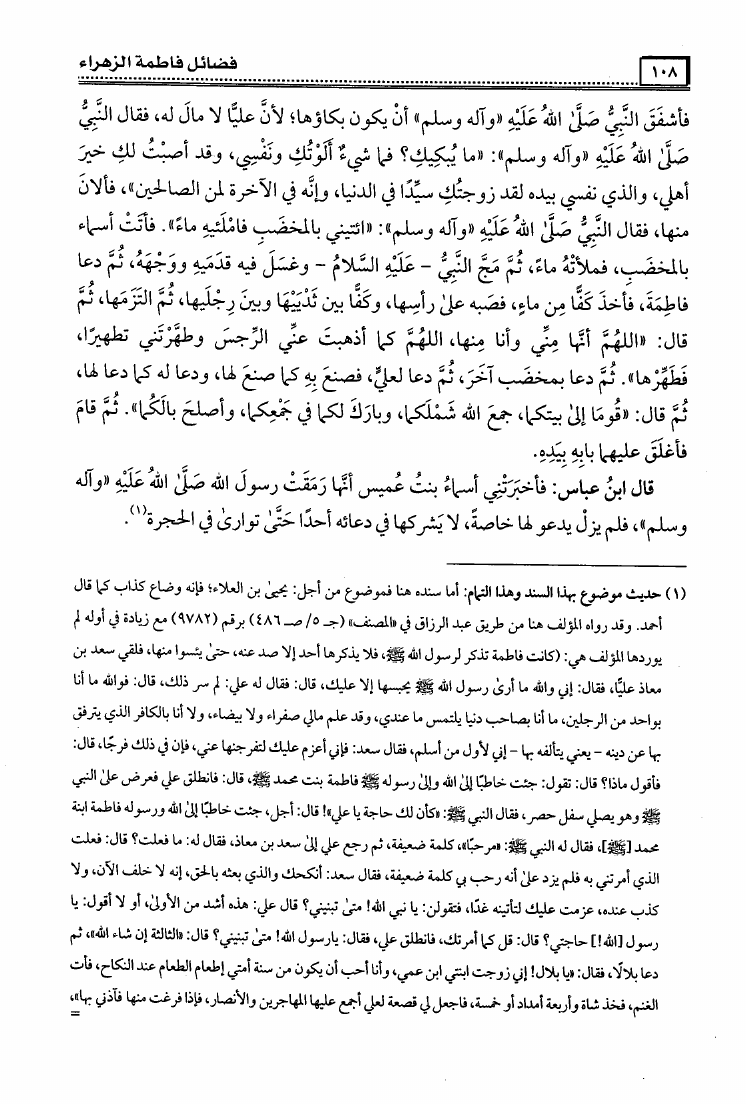 ١٠٨
فضائل فاطمة الزهراء
فأشفَقَ النَّبِيُّ صَلَّىٰ اللهُ عَلَيْهِ «وآله وسلم» أنْ يكون بكاؤها؛ لأنَّ عليًّا لا مالَ له، فقال النَّبِيُّ
صَلَّىٰ اللهُ عَلَيْهِ «وآله وسلم»: «ما يُبكِيكِ؟ فما شيءٌ أَلَوْتُكِ ونَفْسِي، وقد أصبْتُ لكِ خيرَ
أهلي، والذي نفسي بيده لقد زوجتُكِ سيِّدًا في الدنيا، وإنَّه في الآخرة لمن الصالحين»، فألانَ
منها، فقال النَّبِيُّ صَلَّىٰ اللهُ عَلَيْهِ «وآله وسلم»: «ائتيني بالمخضَبِ فامْلَئيهِ ماءً». فأتَتْ أسماء
بالمخضَبِ، فملأتْهُ ماءً، ثُمَّ مَجَّ النَّبِيُّ - عَلَيْهِ السَّلامُ - وغسَلَ فيه قدَمَيهِ ووَجْهَهُ، ثُمَّ دعا
فاطِمَةَ، فأخذَ كَفًّا مِن ماءٍ، فصَبه علىٰ رأسِها، وكفًّا بين ثَدْيَيْهَا وبينَ رِجْلَيها، ثُمَّ التَزَمَها، ثُمَّ
قال: «اللهُمَّ أنَّها مِنِّي وأنا مِنها، اللهُمَّ كما أذهبتَ عنِّي الرِّجسَ وطهَّرْتَني تطهيرًا،
فَطَهِّرْها». ثُمَّ دعا بمخضَب آخَرَ، ثُمَّ دعا لعليٍّ، فصنعَ بِهِ كما صنعَ لها، ودعا له كما دعا لها،
ثُمَّ قال: «قُومَا إلىٰ بيتكما، جمعَ الله شَمْلَكما، وبارَكَ لكما في جَمْعِكما، وأصلحَ بالَكُما». ثُمَّ قامَ
فأغلَقَ عليهما بابِهِ بِيَدِهِ.
قال ابنُ عباس: فأخبَرَتْنِي أسماءُ بنتُ عُميس أنَّها رَمَقَتْ رسولَ الله صَلَّىٰ اللهُ عَلَيْهِ «وآله
وسلم»، فلم يزلْ يدعو لها خاصةً، لا يَشركها في دعائه أحدًا حَتَّىٰ توارىٰ في الحجرة(١).
(١) حديث موضوع بهذا السند وهذا التمام: أما سنده هنا فموضوع من أجل: يحيىٰ بن العلاء؛ فإنه وضاع كذاب كما قال
أحمد. وقد رواه المؤلف هنا من طريق عبد الرزاق في «المصنف» (جـ ٥/ صـ ٤٨٦) برقم (٩٧٨٢) مع زيادة في أوله لم
يوردها المؤلف هي: (كانت فاطمة تذكر لرسول الله ﷺ، فلا يذكرها أحد إلا صد عنه، حتىٰ يئسوا منها، فلقي سعد بن
معاذ عليًّا، فقال: إني والله ما أرىٰ رسول الله ﷺ يحبسها إلا عليك، قال: فقال له علي: لم سر ذلك، قال: فوالله ما أنا
بواحد من الرجلين، ما أنا بصاحب دنيا يلتمس ما عندي، وقد علم مالي صفراء ولا بيضاء، ولا أنا بالكافر الذي يترفق
بها عن دينه - يعني يتألفه بها - إني لأول من أسلم، فقال سعد: فإني أعزم عليك لتفرجنها عني، فإن في ذلك فرجًا، قال:
فأقول ماذا؟ قال: تقول: جئت خاطبًا إلىٰ الله وإلىٰ رسوله ﷺ فاطمة بنت محمد ﷺ، قال: فانطلق علي فعرض علىٰ النبي
ﷺ وهو يصلي سفل حصر، فقال النبي ﷺ: «كأن لك حاجة يا علي»! قال: أجل، جئت خاطبًا إلىٰ الله ورسوله فاطمة ابنة
محمد [ﷺ]، فقال له النبي ﷺ: «مرحبًا»، كلمة ضعيفة، ثم رجع علي إلىٰ سعد بن معاذ، فقال له: ما فعلت؟ قال: فعلت
الذي أمرتني به فلم يزد علىٰ أنه رحب بي كلمة ضعيفة، فقال سعد: أنكحك والذي بعثه بالحق، إنه لا خلف الآن، ولا
كذب عنده، عزمت عليك لتأتينه غدًا، فتقولن: يا نبي الله! متىٰ تبنيني؟ قال علي: هذه أشد من الأولىٰ، أو لا أقول: يا
رسول [الله!] حاجتي؟ قال: قل كما أمرتك، فانطلق علي، فقال: يارسول الله! متىٰ تبنيني؟ قال: «الثالثة إن شاء الله»، ثم
دعا بلالًا، فقال: «يا بلال! إني زوجت ابنتي ابن عمي، وأنا أحب أن يكون من سنة أمتي إطعام الطعام عند النكاح، فأت
الغنم، فخذ شاة وأربعة أمداد أو خمسة، فاجعل لي قصعة لعلي أجمع عليها المهاجرين والأنصار، فإذا فرغت منها فآذني بها»،
=